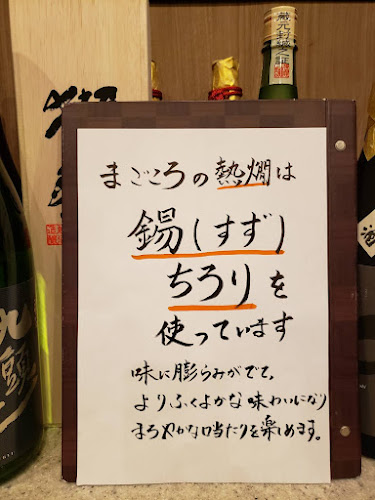 蔵元封緘之証
まごころの熱燗は
錫(すず)
ちろりを
使っています
味に膨らみがでて、
よりふくよかな味わいになり
まろやかな口当たりを楽しめます。
九頭
酒